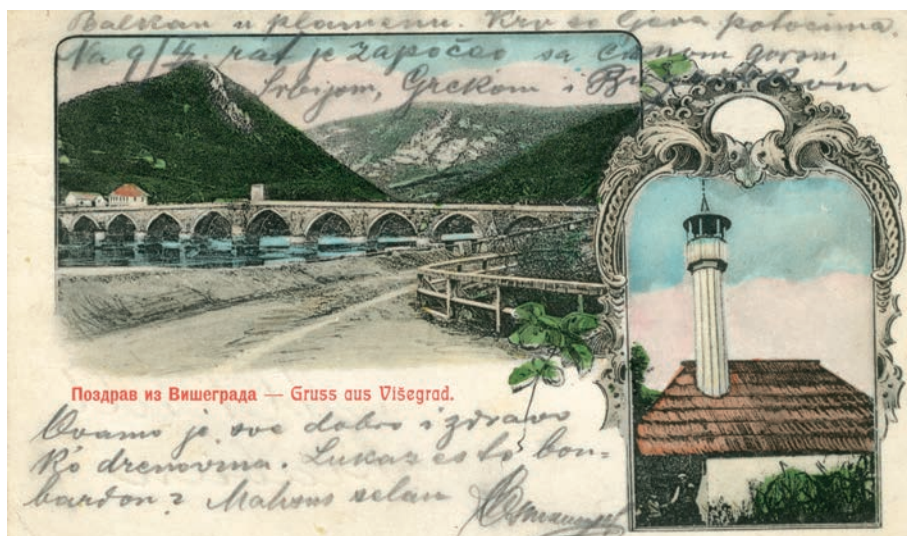 Balkan u plamenu. Krv se ljeva potocima.
Na 9/4. rat je započeo sa Crnom gorom,
Srbijom, Grekom i
Поздрав из Вишеграда — Gruss aus Višegrad.
Ovamo je sve dobro i zdravo
ko drenovina. Lukaz es to bon=
bardon? Mahsus selam